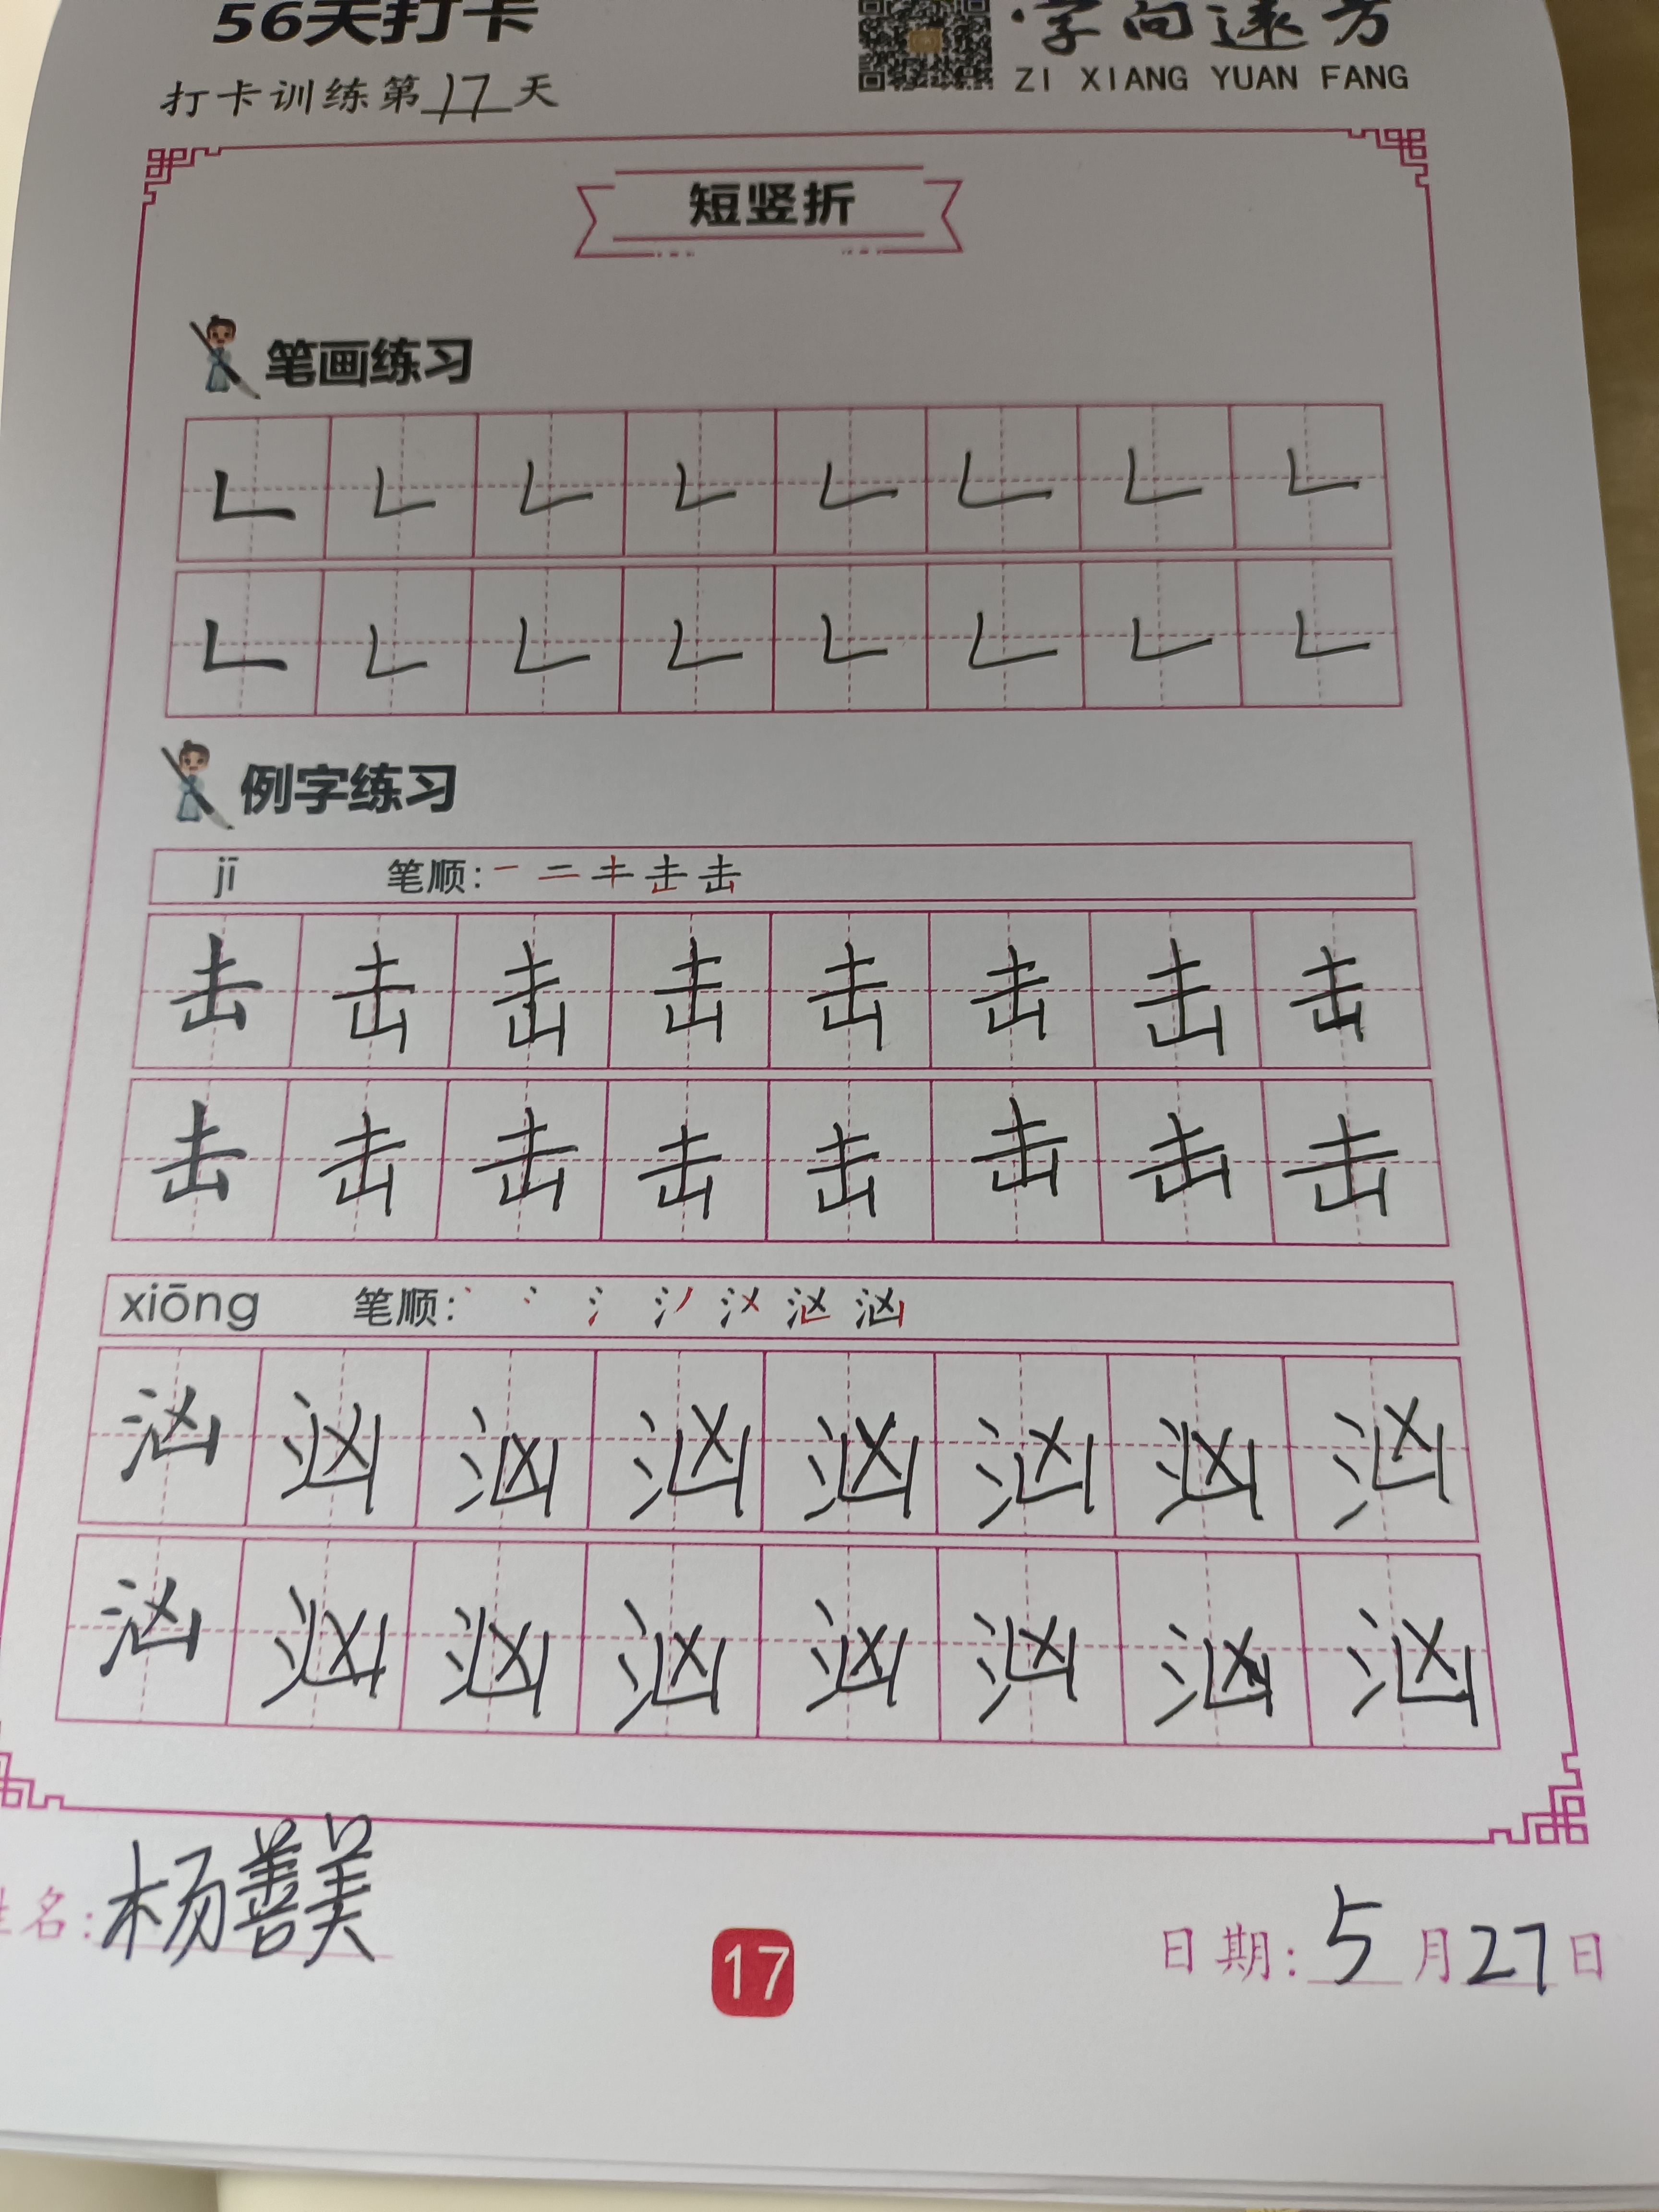 56天打卡
·字向远方
打卡训练第17天
ZI XIANG YUAN FANG
短竖折
笔画练习
例字练习
jī 笔顺:一 二 キ 击 击
击 击 击 击 击 击 击 击
击 击 击 击 击 击 击 击
xiōng 笔顺: 汹
汹 汹 汹 汹 汹 汹 汹 汹
汹 汹 汹 汹 汹 汹 汹 汹
姓名:杨善美
17
日期:5月27日